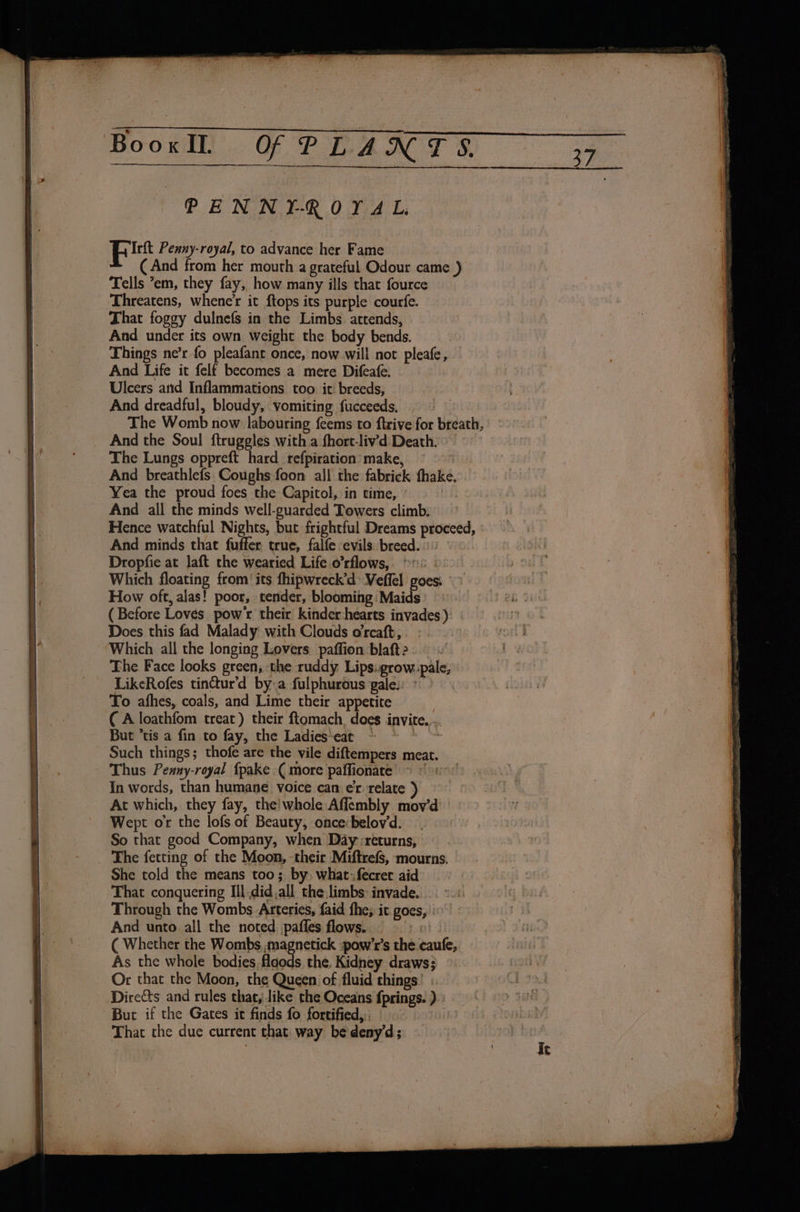 Book II. Of PLANTS. 37
PENNY-ROYAL.
FIrſt Penny-royal, to advance her Fame
(And from her mouth a grateful Odour came)
Tells 'em, they ſay, how many ills that ſource
Threatens, whene'r it ſtops its purple courſe.
That foggy dulneſs in the Limbs attends,
And under its own weight the body bends.
Things ne'r ſo pleaſant once, now will not pleaſe,
And Life it ſelf becomes a mere Diſeaſe.
Ulcers and Inflammations too it breeds,
And dreadful, bloudy, vomiting ſucceeds.
The Womb now labouring ſeems to ſtrive for breath,
And the Soul ſtruggles with a ſhort-liv'd Death.
The Lungs oppreſt hard reſpiration make,
And breathleſs Coughs ſoon all the fabrick ſhake.
Yea the proud foes the Capitol, in time,
And all the minds well-guarded Towers climb.
Hence watchful Nights, but frightful Dreams proceed,
And minds that ſuffer true, falſe evils breed.
Dropſie at laſt the wearied Life o'rflows,
Which floating from its ſhipwreck'd Veſſel goes.
How oft, alas! poor, tender, blooming Maids
(Before Loves pow'r their kinder hearts invades)
Does this ſad Malady with Clouds o'rcaſt,
Which all the longing Lovers paſſion blaſt?
The Face looks green, the ruddy Lips grow pale,
LikeRoſes tinctur'd by a ſulphurous gale.
To aſhes, coals, and Lime their appetite
(A loathſom treat) their ſtomach does invite.
But 'tis a ſin to ſay, the Ladies eat
Such things; thoſe are the vile diſtempers meat.
Thus Penny-royal ſpake (more paſſionate
In words, than humane voice can e'r relate)
At which, they ſay, the whole Aſſembly mov'd
Wept o'r the loſs of Beauty, once belov'd.
So that good Company, when Day returns,
The ſetting of the Moon, their Miſtreſs, mourns.
She told the means too; by what ſecret aid
That conquering Ill did all the limbs invade.
Through the Wombs Arteries, ſaid ſhe, it goes,
And unto all the noted paſſes flows.
(Whether the Wombs magnetick pow'r's the cauſe,
As the whole bodies floods the Kidney draws;
Or that the Moon, the Queen of fluid things
Directs and rules that, like the Oceans ſprings.)
But if the Gates it finds ſo fortified,
That the due current that way be deny'd;
It